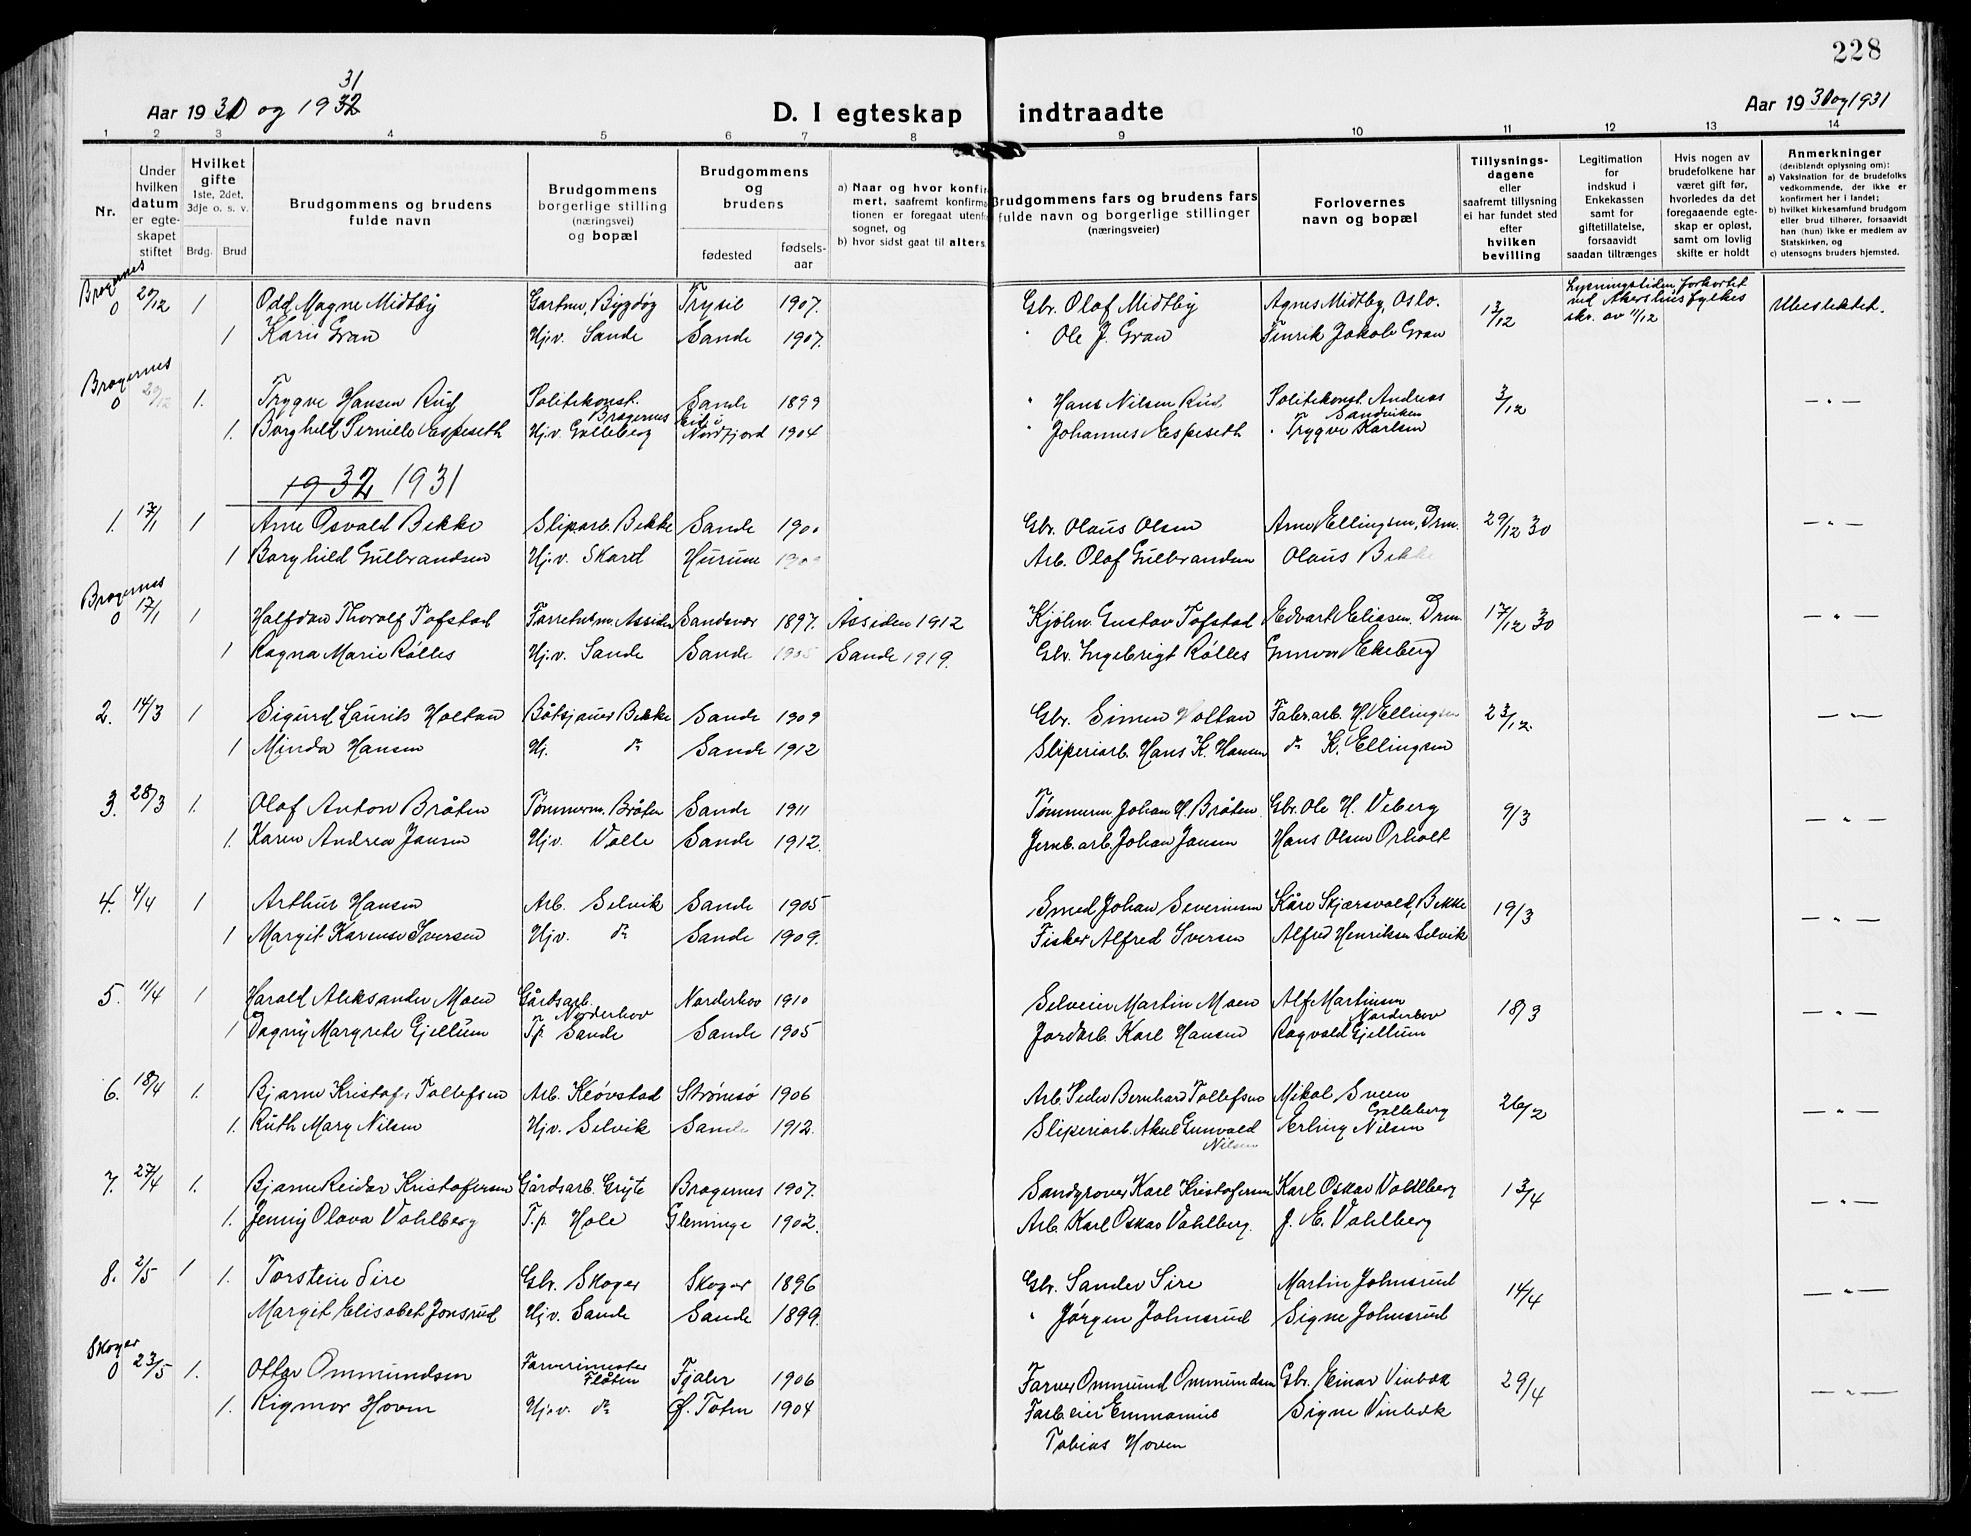 228
Aar 1930 og 1931
D. I egteskap indtraadte
Aar 1930 og 1931
1 2 3 4 5 6 7 8 9 10 11 12 13 14
Nr.
Under hvilken datum er egteskapet stiftet
Hvilket gifte 1ste, 2det, 3dje o. s. v.
Brdg. Brud
Brudgommens og brudens fulde navn
Brudgommens borgerlige stilling (næringsvei) og bopæl
Brudgommens og brudens
fødested fødsels-aar
a) Naar og hvor konfirmert, saafremt konfirmationen er foregaat utenfor sognet, og
b) hvor sidst gaat til alters.
Brudgommens fars og brudens fars fulde navn og borgerlige stillinger (næringsveier)
Forlovernes navn og bopæl
Tillysningsdagene eller saafremt tillysning ei har fundet sted efter hvilken bevilling
Legitimation for indskud i Enkekassen samt for giftetillatelse, forsaavidt saadan tiltrænges
Hvis nogen av brudefolkene har været gift før, hvorledes da det foregaaende egteskap er opløst, samt om lovlig skifte er holdt
Anmerkninger (deriblandt oplysning om):
a) Vaksination for de brudefolks vedkommende, der ikke er konfirmert her i landet;
b) hvilket kirkesamfund brudgom eller brud tilhører, forsaavidt han (hun) ikke er medlem av Statskirken, og
c) utensogns bruders hjemsted.
Bragernes
0 20/12 1 Odd Magne Midtby Gartner, Bygdøy Trysil 1907. Gbr. Olaf Midtby Agnes Midtby, Oslo. 13/12 Lysningstiden forkortet ved Akershus fylkes skr. av 11/12 Ubeslektet.
1 Kari Gran Hj.v. Sande Sande 1907. " Ole J. Gran Jakob Gran
Bragernes
0 20/12 1. Trygve Hansen Rud Politikonst. Bragernes Sande 1899 " Hans Nilsen Rud Politikonst. Andreas Sandviken 3/12 — " —
1. Borghild Pernille Espeseth Hj.v. Galleberg Eid i Nordfjord 1904 " Johannes Espeseth " Trygve Karlsen
1932 1931
1. 17/1 1 Arne Osvald Bekke Sliparb. Bekke Sande 1900 Gbr. Olaus Olsen Arne Ellingsen, Drm. 29/12 30 — " —
1 Borghild Gulbrandsen Hj.v. Skard Hurum Arb. Olaf Gulbrandsen Olaus Bekke
Bragernes
0 17/1 1 Halfdan Thoralf Tofstad Assiden Sandsvær 1897. Åssiden 1912 Kjøbm. Gustav Tofstad Edvart Eliasen, Drm. 17/12 30 — " —
1 Ragna Marie Rølles Hj.v. Sande Sande 1905 Sande 1919. Gbr. Ingebrigt Rølles Gunvor Ekeberg
2. 14/3 1 Sigurd Laurits Holtan Båtsjauer Bekke Sande 1909 Gbr. Simen Holtan Fabr.arb. H. Ellingsen 23/12. — " —
1 Minda Hansen Hj. do Sande 1912 Sliperiarb. Hans K. Hansen do K. Ellingsen
3. 28/3 1. Olaf Anton Bråten Tømmerm. Bråten Sande 1911 Tømmerm Johan H. Bråten Gbr. Ole H. Veberg 9/3 — " —
1. Karen Andrea Jansen Hjv. Valle Sande 1912. Jernb.arb. Johan Jansen Hans Olsen Orholt
4. 4/4 1 Arthur Hansen Arb. Selvik Sande 1905 Smed Johan Severinsen Kåre Skjærsvold, Bekke 19/3 — " —
1 Margit Karense Iversen Hjv. do Sande 1909. Fisker Alfred Iversen Alfred Henriksen Selvik
5. 11/4 1 Harald Aleksander Moen Gårdsarb. Norderhov Norderhov 1910 Selveier Martin Moen Alf Martinsen Norderhov 18/3 — " —
1 Dagny Margrete Gjellum T.p. Sande Sande 1905 Jordarb. Karl Hansen Ragvald Gjellum
6. 18/4 1. Bjarne Kristof. Tollefsen Arb. Kløvstad Strømsø 1906 Arb. Peder Bernhard Tollefsen Mikal Sveen Galleberg 26/2 — " —
1. Ruth Mary Nilsen Hjv. Selvik Sande 1912. Sliperiarb. Aksel Gunvald Nilsen Erling Nilsen
7. 27/4 1. Bjarne Reidar Kristofersen Gårdsarb. Gryte Bragernes 1907. Sandgraver Karl Kristofersen Karl Oskar Vahlberg 13/4 — " —
1. Jenny Olava Vahlberg T.p. Hole Glemminge 1902. Arb. Karl Oskar Vahlberg. J. E. Vahlberg
8. 2/5 1 1. Torstein Sire Gbr. Skoger Skoger 1896 Gbr. Sander Sire Martin Johnsrud 14/4 — " —
Margit Elisabet Jonsrud Hjv. Sande Sande 1899. " Jørgen Johnsrud Signe Johnsrud
Skoger
0 23/5 1. Ottar Ommundsen Farverimester Flåten Fjaler 1906 Farver Ommund Ommundsen Gbr. Einar Vinbæk 29/4 — " —
1. Rigmor Hoven Hj.v. do Ø. Toten 1904 Farb.eier Emmanuus Tobias Hoven Signe Vinbæk